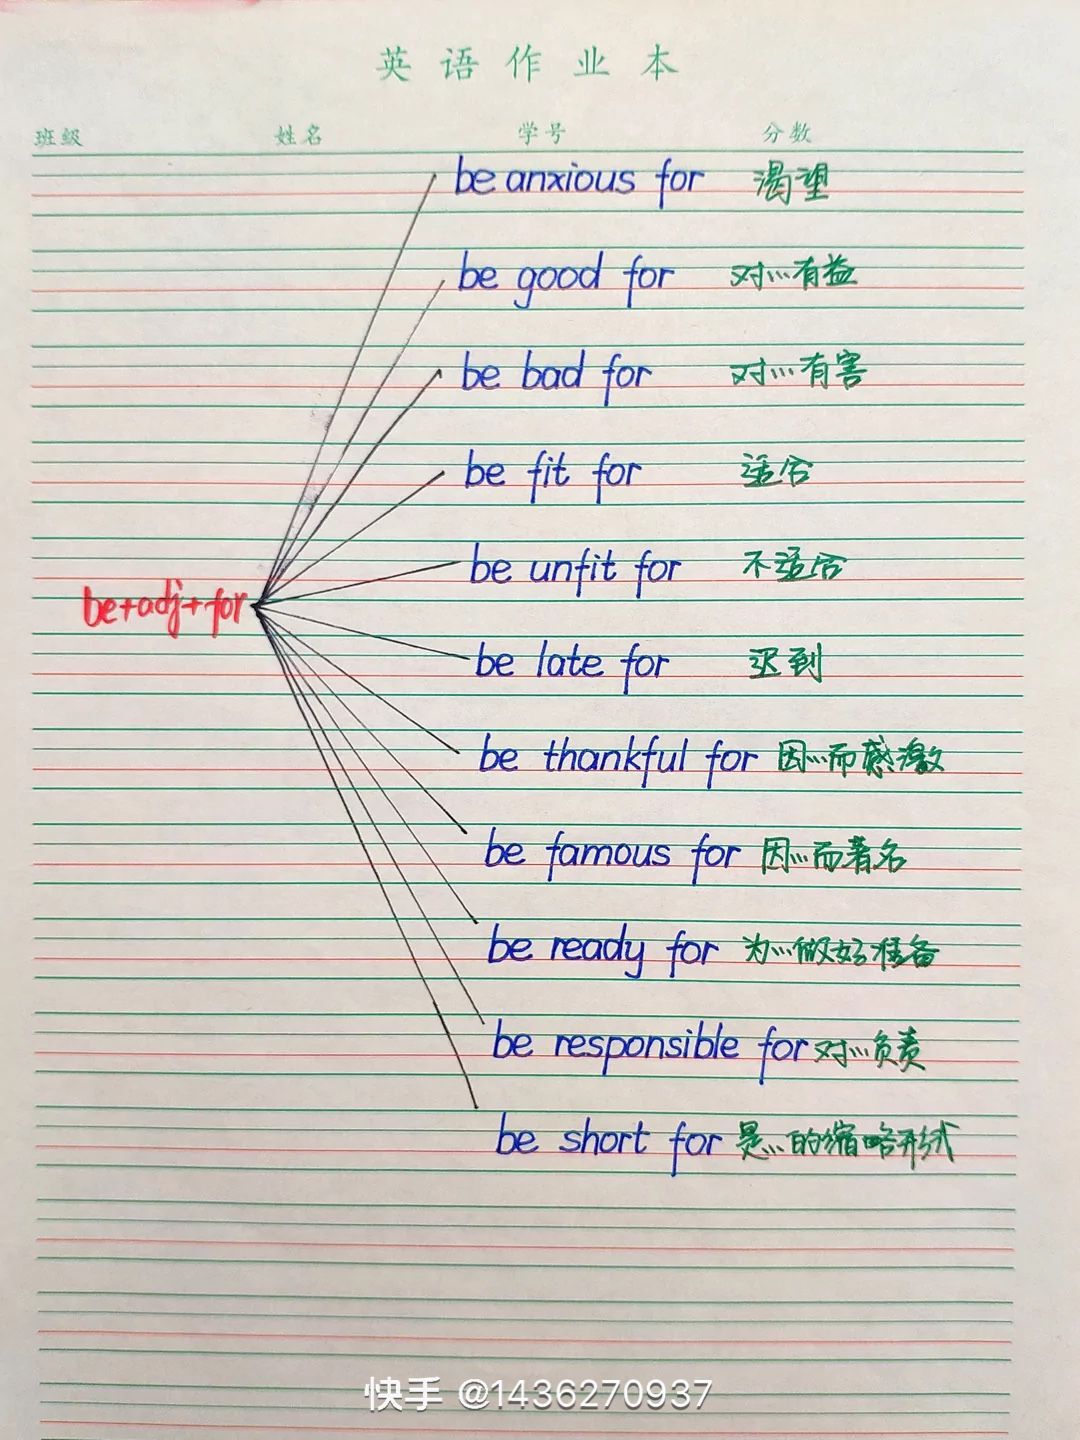 英语作业本
班级 姓名 学号 分数
be anxious for 渴望
be good for 对…有益
be bad for 对…有害
be fit for 适合
be unfit for 不适合
be+adj+for
be late for 迟到
be thankful for 因…而感激
be famous for 因…而著名
be ready for 为…做好准备
be responsible for 对…负责
be short for 是…的缩略形式
快手 @1436270937